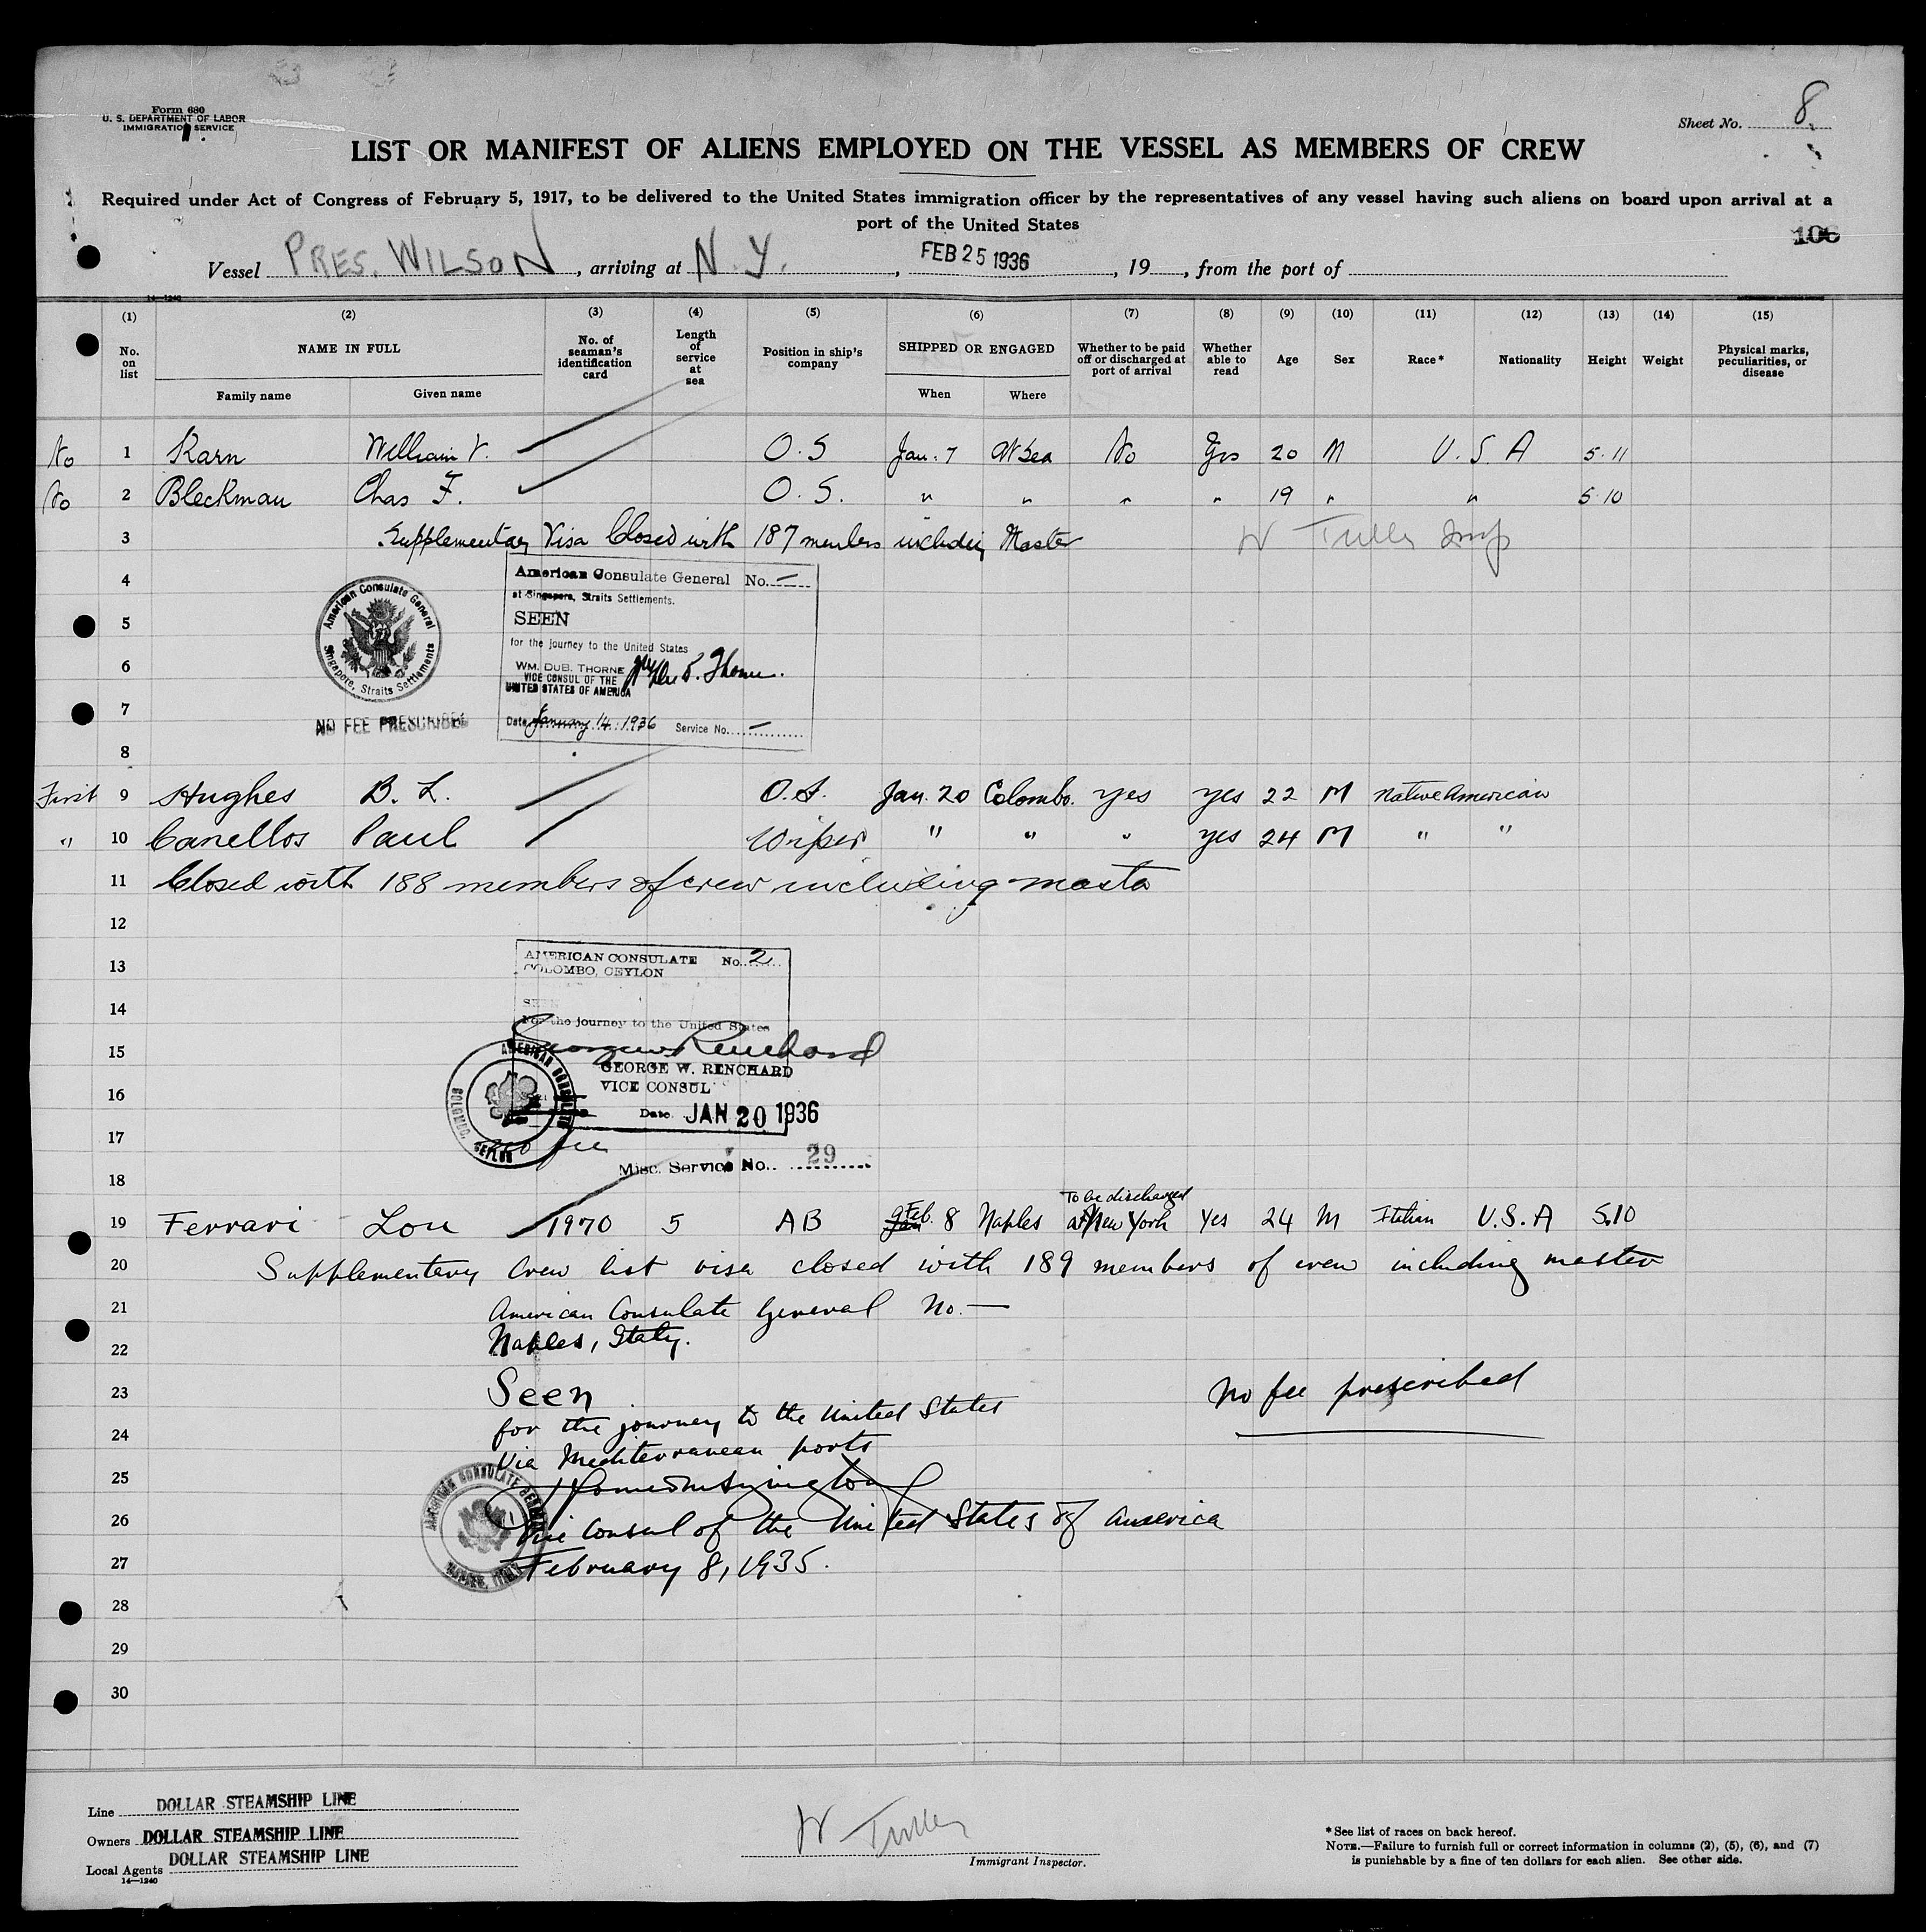 Form 680
U. S. DEPARTMENT OF LABOR
IMMIGRATION SERVICE
Sheet No. 8.
LIST OR MANIFEST OF ALIENS EMPLOYED ON THE VESSEL AS MEMBERS OF CREW
Required under Act of Congress of February 5, 1917, to be delivered to the United States immigration officer by the representatives of any vessel having such aliens on board upon arrival at a
port of the United States
106
Vessel PRES. WILSON, arriving at N. Y., FEB 25 1936, 19, from the port of
14—1240
(1) (2) (3) (4) (5) (6) (7) (8) (9) (10) (11) (12) (13) (14) (15)
No. on list NAME IN FULL No. of seaman's identification card Length of service at sea Position in ship's company SHIPPED OR ENGAGED Whether to be paid off or discharged at port of arrival Whether able to read Age Sex Race* Nationality Height Weight Physical marks, peculiarities, or disease
Family name Given name When Where
No 1 Karn William V. O. S Jan. 7 At Sea No Yes 20 M U. S. A 5·11
No 2 Bleckman Chas F. O. S. " " " " 19 " " 5·10
3 Supplementary Visa Closed with 187 members including Master W Tuller Insp
4
American Consulate General No. —
at Singapore, Straits Settlements.
5
SEEN
for the journey to the United States
6
WM. DUB. THORNE
VICE CONSUL OF THE
UNITED STATES OF AMERICA
American Consulate General
Singapore, Straits Settlements
7
NO FEE PRESCRIBED
Date January 14, 1936 Service No. —
8
First 9 Hughes B. L. O.S. Jan. 20 Colombo. yes yes 22 M Native American
" 10 Canellos Paul Wiper " " " yes 24 M " "
11 Closed with 188 members of crew including master
12
13
AMERICAN CONSULATE No. 2
COLOMBO, CEYLON
14
SEEN
For the journey to the United States
15
George W Renchard
GEORGE W. RENCHARD
VICE CONSUL
16
Date JAN 20 1936
AMERICAN CONSULATE
COLOMBO, CEYLON
17
No fee
Misc. Service No. 29
18
To be discharged
19 Ferrari Lou 1970 5 AB Feb. 8 Naples at New York Yes 24 M Italian U.S.A 5.10
20 Supplementary Crew list visa closed with 189 members of crew including master
21 American Consulate General No. —
22 Naples, Italy.
23 Seen No fee prescribed
for the journey to the United States
24
via Mediterranean ports
25
AMERICAN CONSULATE GENERAL
NAPLES, ITALY
26 Vice Consul of the United States of America
27 February 8, 1935.
28
29
30
Line DOLLAR STEAMSHIP LINE
Owners DOLLAR STEAMSHIP LINE
Local Agents DOLLAR STEAMSHIP LINE
14—1240
W Tuller
Immigrant Inspector.
*See list of races on back hereof.
NOTE.—Failure to furnish full or correct information in columns (2), (5), (6), and (7)
is punishable by a fine of ten dollars for each alien. See other side.